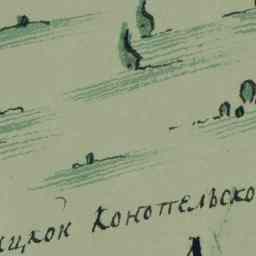 ицкой Конопельско